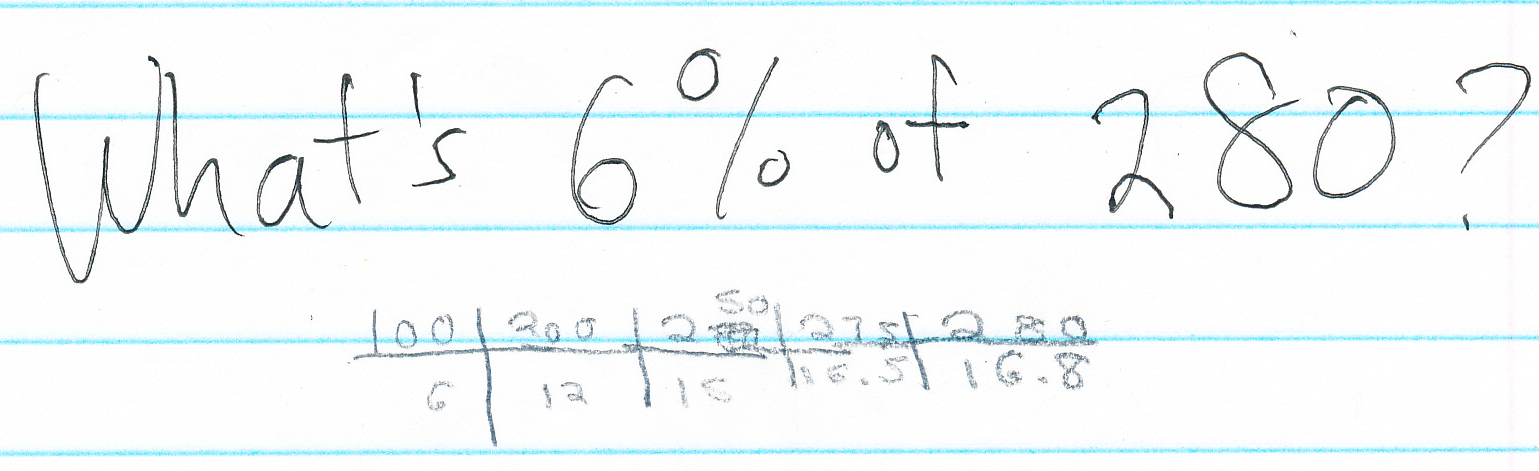 What's 6% of 280?
100 200 250 275 280
6 12 15 16.5 16.8